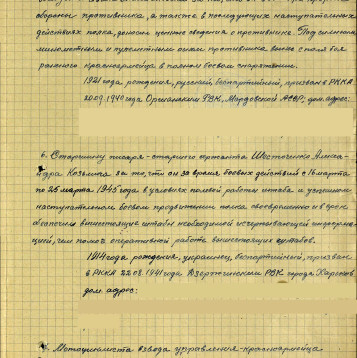 обороны противника, а также в последующих наступательных
действиях полка, доносил ценные сведения о противнике. Под сильным
минометным и пулеметным огнем противника вынес с поля боя
раненого красноармейца в полном боевом снаряжении.
1921 года рождения, русский, беспартийный, призван в РККА
20.09.1940 года РВК, Мордовской АССР; дом. адрес:
6. Старшину писаря - старшего сержанта Шесточенко Алекса-
ндра Козьмича за то, что он за время боевых действий с 16 марта
по 25 марта 1945 года в условиях полевой работы штаба и успешном
наступательном боевом продвижении полка своевременно и в срок
обеспечил вышестоящие штабы необходимой исчерпывающей информа-
цией, чем помог оперативной работе вышестоящих штабов.
1914 года рождения, украинец, беспартийный, призван
в РККА 22.08.1941 года Дзержинским РВК города Харьков
дом. адрес:
Мотоциклиста взвода управления - красноармейца